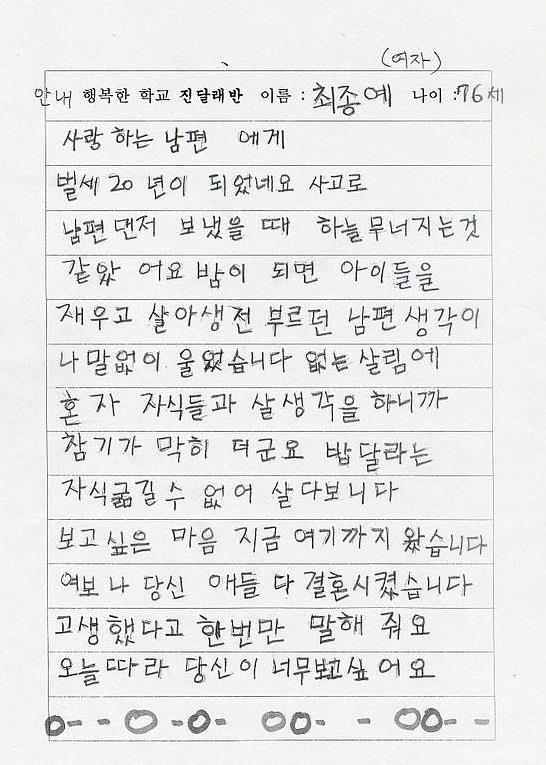 (여자)
안내 행복한 학교 진달래반 이름 : 최종예 나이 : 76세
사랑 하는 남편 에게
벌세 20 년이 되었네요 사고로
남편 댄저 보냈을 때 하늘 무너지는것
같았 어요 밤이 되면 아이들을
재우고 살아생전 부르던 남편 생각이
나 말없이 울었습니다 없는 살림에
혼자 자식들과 살생각을 하니까
참기가 막히 더군요 밥달라는
자식굶길 수 없어 살 다보니다
보고싶은 마음 지금 여기까지 왔습니다
여보 나 당신 애들 다 결혼시켰습니다
고생했다고 한번만 말해 줘요
오늘따라 당신이 너무보고싶어요